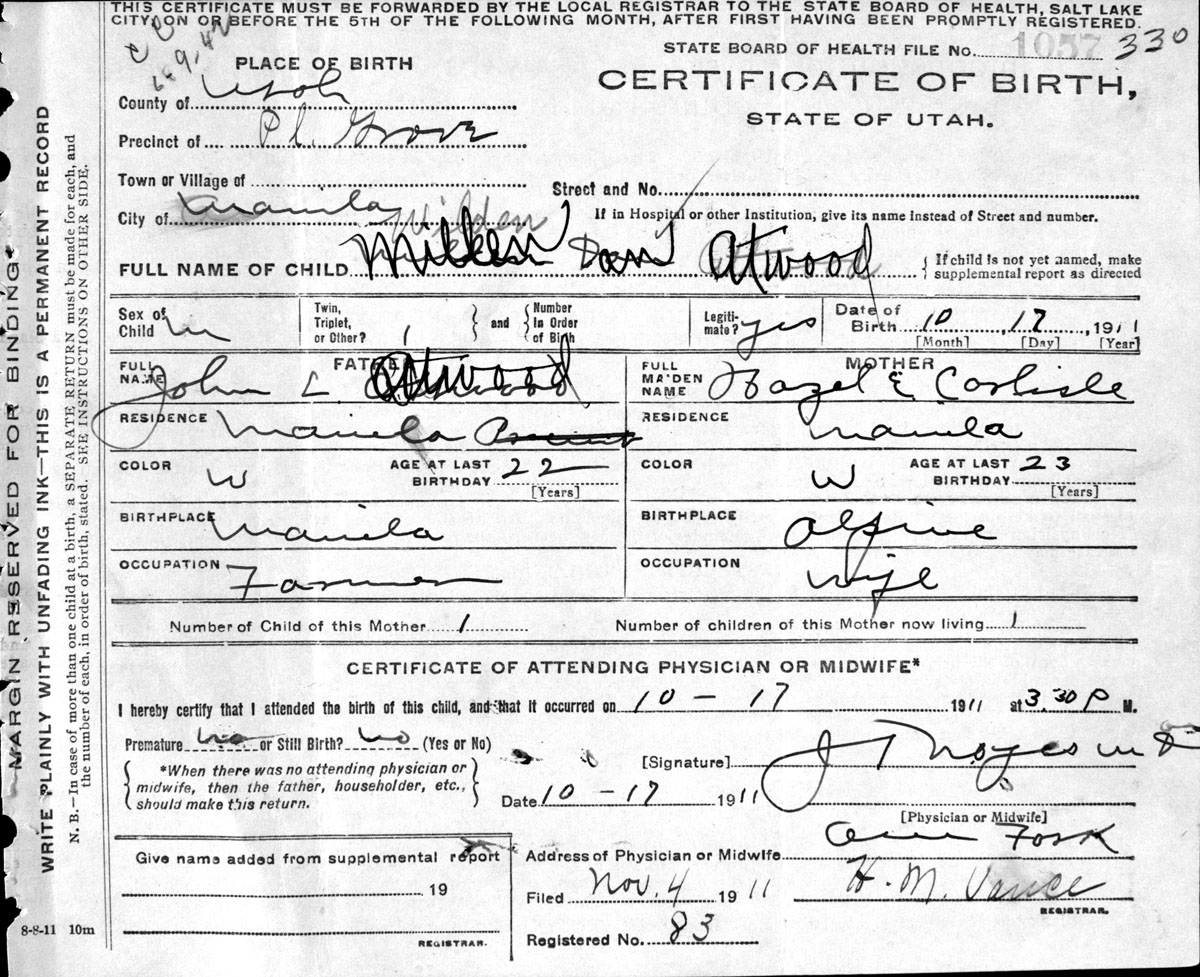 THIS CERTIFICATE MUST BE FORWARDED BY THE LOCAL REGISTRAR TO THE STATE BOARD OF HEALTH, SALT LAKE
CITY, ON OR BEFORE THE 5TH OF THE FOLLOWING MONTH, AFTER FIRST HAVING BEEN PROMPTLY REGISTERED.
STATE BOARD OF HEALTH FILE No. 1057 330
CERTIFICATE OF BIRTH,
STATE OF UTAH.
PLACE OF BIRTH
County of Utah
Precinct of Pl. Grove
Town or Village of
Street and No.
City of Manila
If in Hospital or other Institution, give its name instead of Street and number.
Wilden
FULL NAME OF CHILD Atwood
{ If child is not yet named, make
supplemental report as directed
Sex of Child m
Twin, Triplet, or Other? 1 } and { Number In Order of Birth
Legiti-mate? yes
Date of Birth 10, 17, 1911
[Month] [Day] [Year]
FATHER
FULL NAME John L. Atwood
MOTHER
FULL MAIDEN NAME Hazel E Carlisle
RESIDENCE Manila
RESIDENCE Manila
COLOR W
AGE AT LAST BIRTHDAY 22
[Years]
COLOR W
AGE AT LAST BIRTHDAY 23
[Years]
BIRTHPLACE Manila
BIRTHPLACE Alpine
OCCUPATION Farmer
OCCUPATION Wife
Number of Child of this Mother 1
Number of children of this Mother now living 1
CERTIFICATE OF ATTENDING PHYSICIAN OR MIDWIFE*
I hereby certify that I attended the birth of this child, and that it occurred on 10 - 17 1911 at 3.30 P M.
Premature no or Still Birth? No (Yes or No)
{ *When there was no attending physician or
midwife, then the father, householder, etc.,
should make this return. }
[Signature] J T Noyes M D
Date 10 - 17 1911
[Physician or Midwife]
Give name added from supplemental report
19
REGISTRAR.
Address of Physician or Midwife Am Fork
Filed Nov. 4 1911
H. M. Vance
REGISTRAR.
Registered No. 83
8-8-11 10m
MARGIN RESERVED FOR BINDING*
WRITE PLAINLY WITH UNFADING INK—THIS IS A PERMANENT RECORD
N. B.—In case of more than one child at a birth, a SEPARATE RETURN must be made for each, and
the number of each, in order of birth, stated. SEE INSTRUCTIONS ON OTHER SIDE,